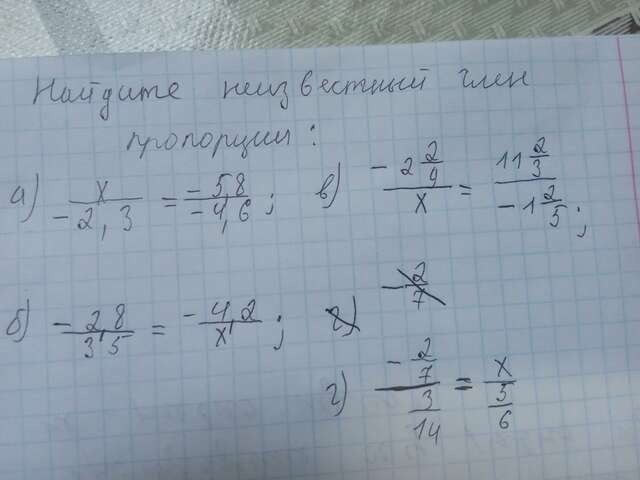 Найдите неизвестный член
пропорции:
а) x/-2,3 = -5,8/-4,6;
в) -2 2/9 / x = 11 2/3 / -1 2/5;
б) -2,8/3,5 = -4,2/x;
г) -2/7
г) -2/7 / 3/14 = x / 5/6